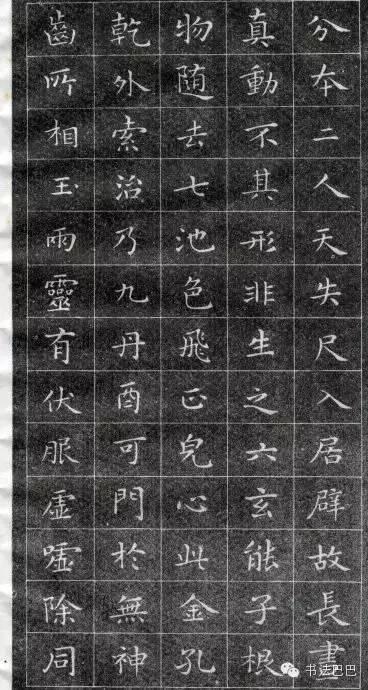 分本二人天失尺入居辟故長畫
真動不其形非生之六玄能子根
物随去七池色飛正皃心此金孔
乾外索治乃九丹酉可門於無神
齒所相玉雨靈有伏服虚嘘除同
书法巴巴